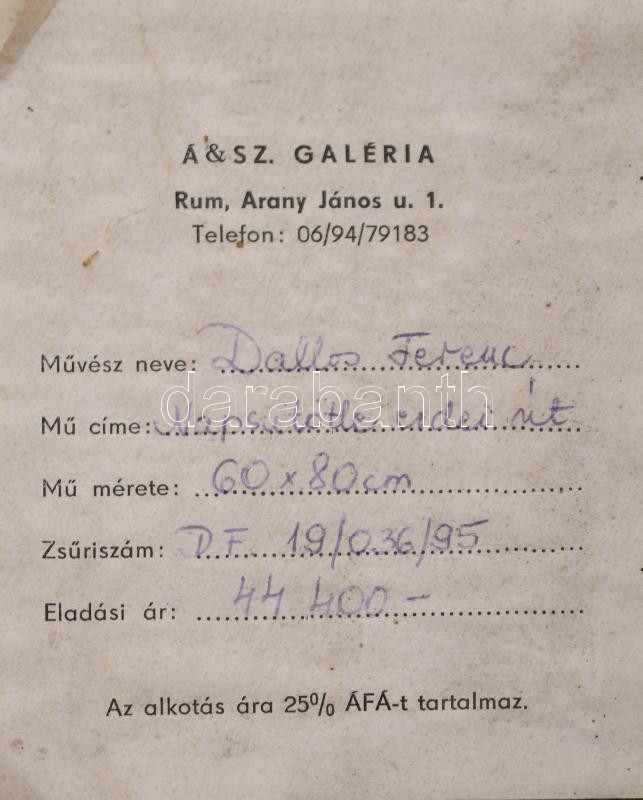 Á&SZ. GALÉRIA
Rum, Arany János u. 1.
Telefon: 06/94/79183
Művész neve: Dallos Ferenc
darabanth
Mű címe: Napsütötte erdei út
Mű mérete: 60x80cm
Zsűriszám: D.F. 19/036/95
Eladási ár: 44 400-
Az alkotás ára 25% ÁFÁ-t tartalmaz.